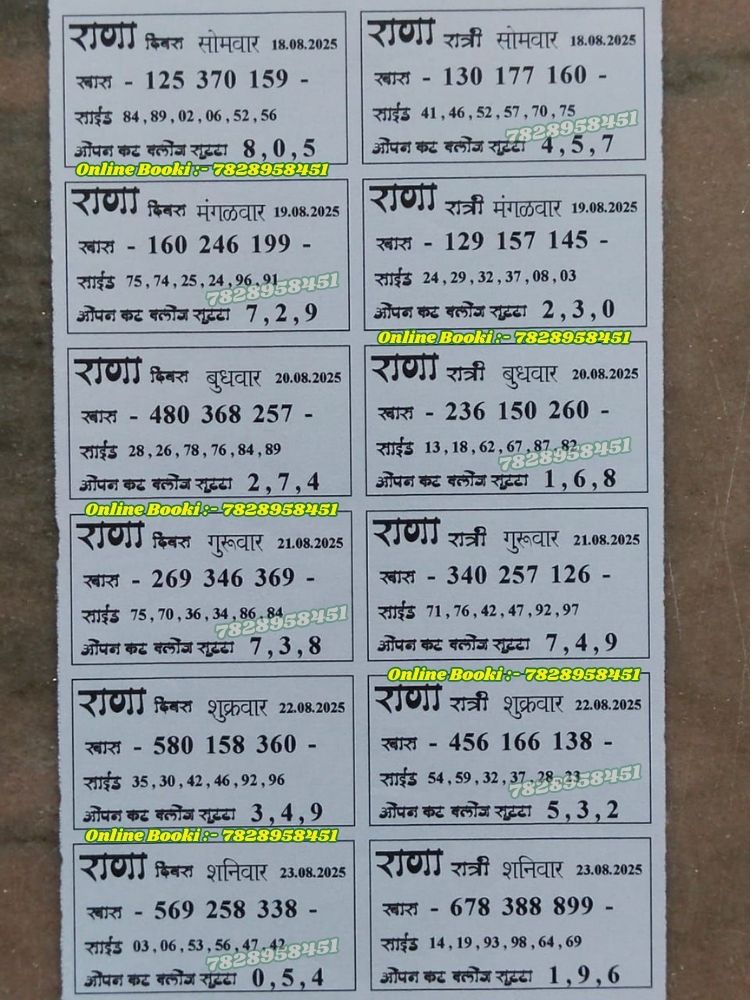 राणा दिवस सोमवार 18.08.2025
खास - 125 370 159 -
साईड 84,89,02,06,52,56
ओपन कट क्लोज सुट्टा 8,0,5
Online Booki :- 7828958451
राणा रात्री सोमवार 18.08.2025
खास - 130 177 160 -
साईड 41,46,52,57,70,75
7828958451
ओपन कट क्लोज सुट्टा 4,5,7
राणा दिवस मंगळवार 19.08.2025
खास - 160 246 199 -
साईड 75,74,25,24,96,91
7828958451
ओपन कट क्लोज सुट्टा 7,2,9
राणा रात्री मंगळवार 19.08.2025
खास - 129 157 145 -
साईड 24,29,32,37,08,03
ओपन कट क्लोज सुट्टा 2,3,0
Online Booki :- 7828958451
राणा दिवस बुधवार 20.08.2025
खास - 480 368 257 -
साईड 28,26,78,76,84,89
ओपन कट क्लोज सुट्टा 2,7,4
Online Booki :- 7828958451
राणा रात्री बुधवार 20.08.2025
खास - 236 150 260 -
साईड 13,18,62,67,87,82
7828958451
ओपन कट क्लोज सुट्टा 1,6,8
राणा दिवस गुरूवार 21.08.2025
खास - 269 346 369 -
साईड 75,70,36,34,86,84
7828958451
ओपन कट क्लोज सुट्टा 7,3,8
राणा रात्री गुरूवार 21.08.2025
खास - 340 257 126 -
साईड 71,76,42,47,92,97
ओपन कट क्लोज सुट्टा 7,4,9
Online Booki :- 7828958451
राणा दिवस शुक्रवार 22.08.2025
खास - 580 158 360 -
साईड 35,30,42,46,92,96
ओपन कट क्लोज सुट्टा 3,4,9
Online Booki :- 7828958451
राणा रात्री शुक्रवार 22.08.2025
खास - 456 166 138 -
साईड 54,59,32,37,28,23
7828958451
ओपन कट क्लोज सुट्टा 5,3,2
राणा दिवस शनिवार 23.08.2025
खास - 569 258 338 -
साईड 03,06,53,56,47,42
7828958451
ओपन कट क्लोज सुट्टा 0,5,4
राणा रात्री शनिवार 23.08.2025
खास - 678 388 899 -
साईड 14,19,93,98,64,69
ओपन कट क्लोज सुट्टा 1,9,6